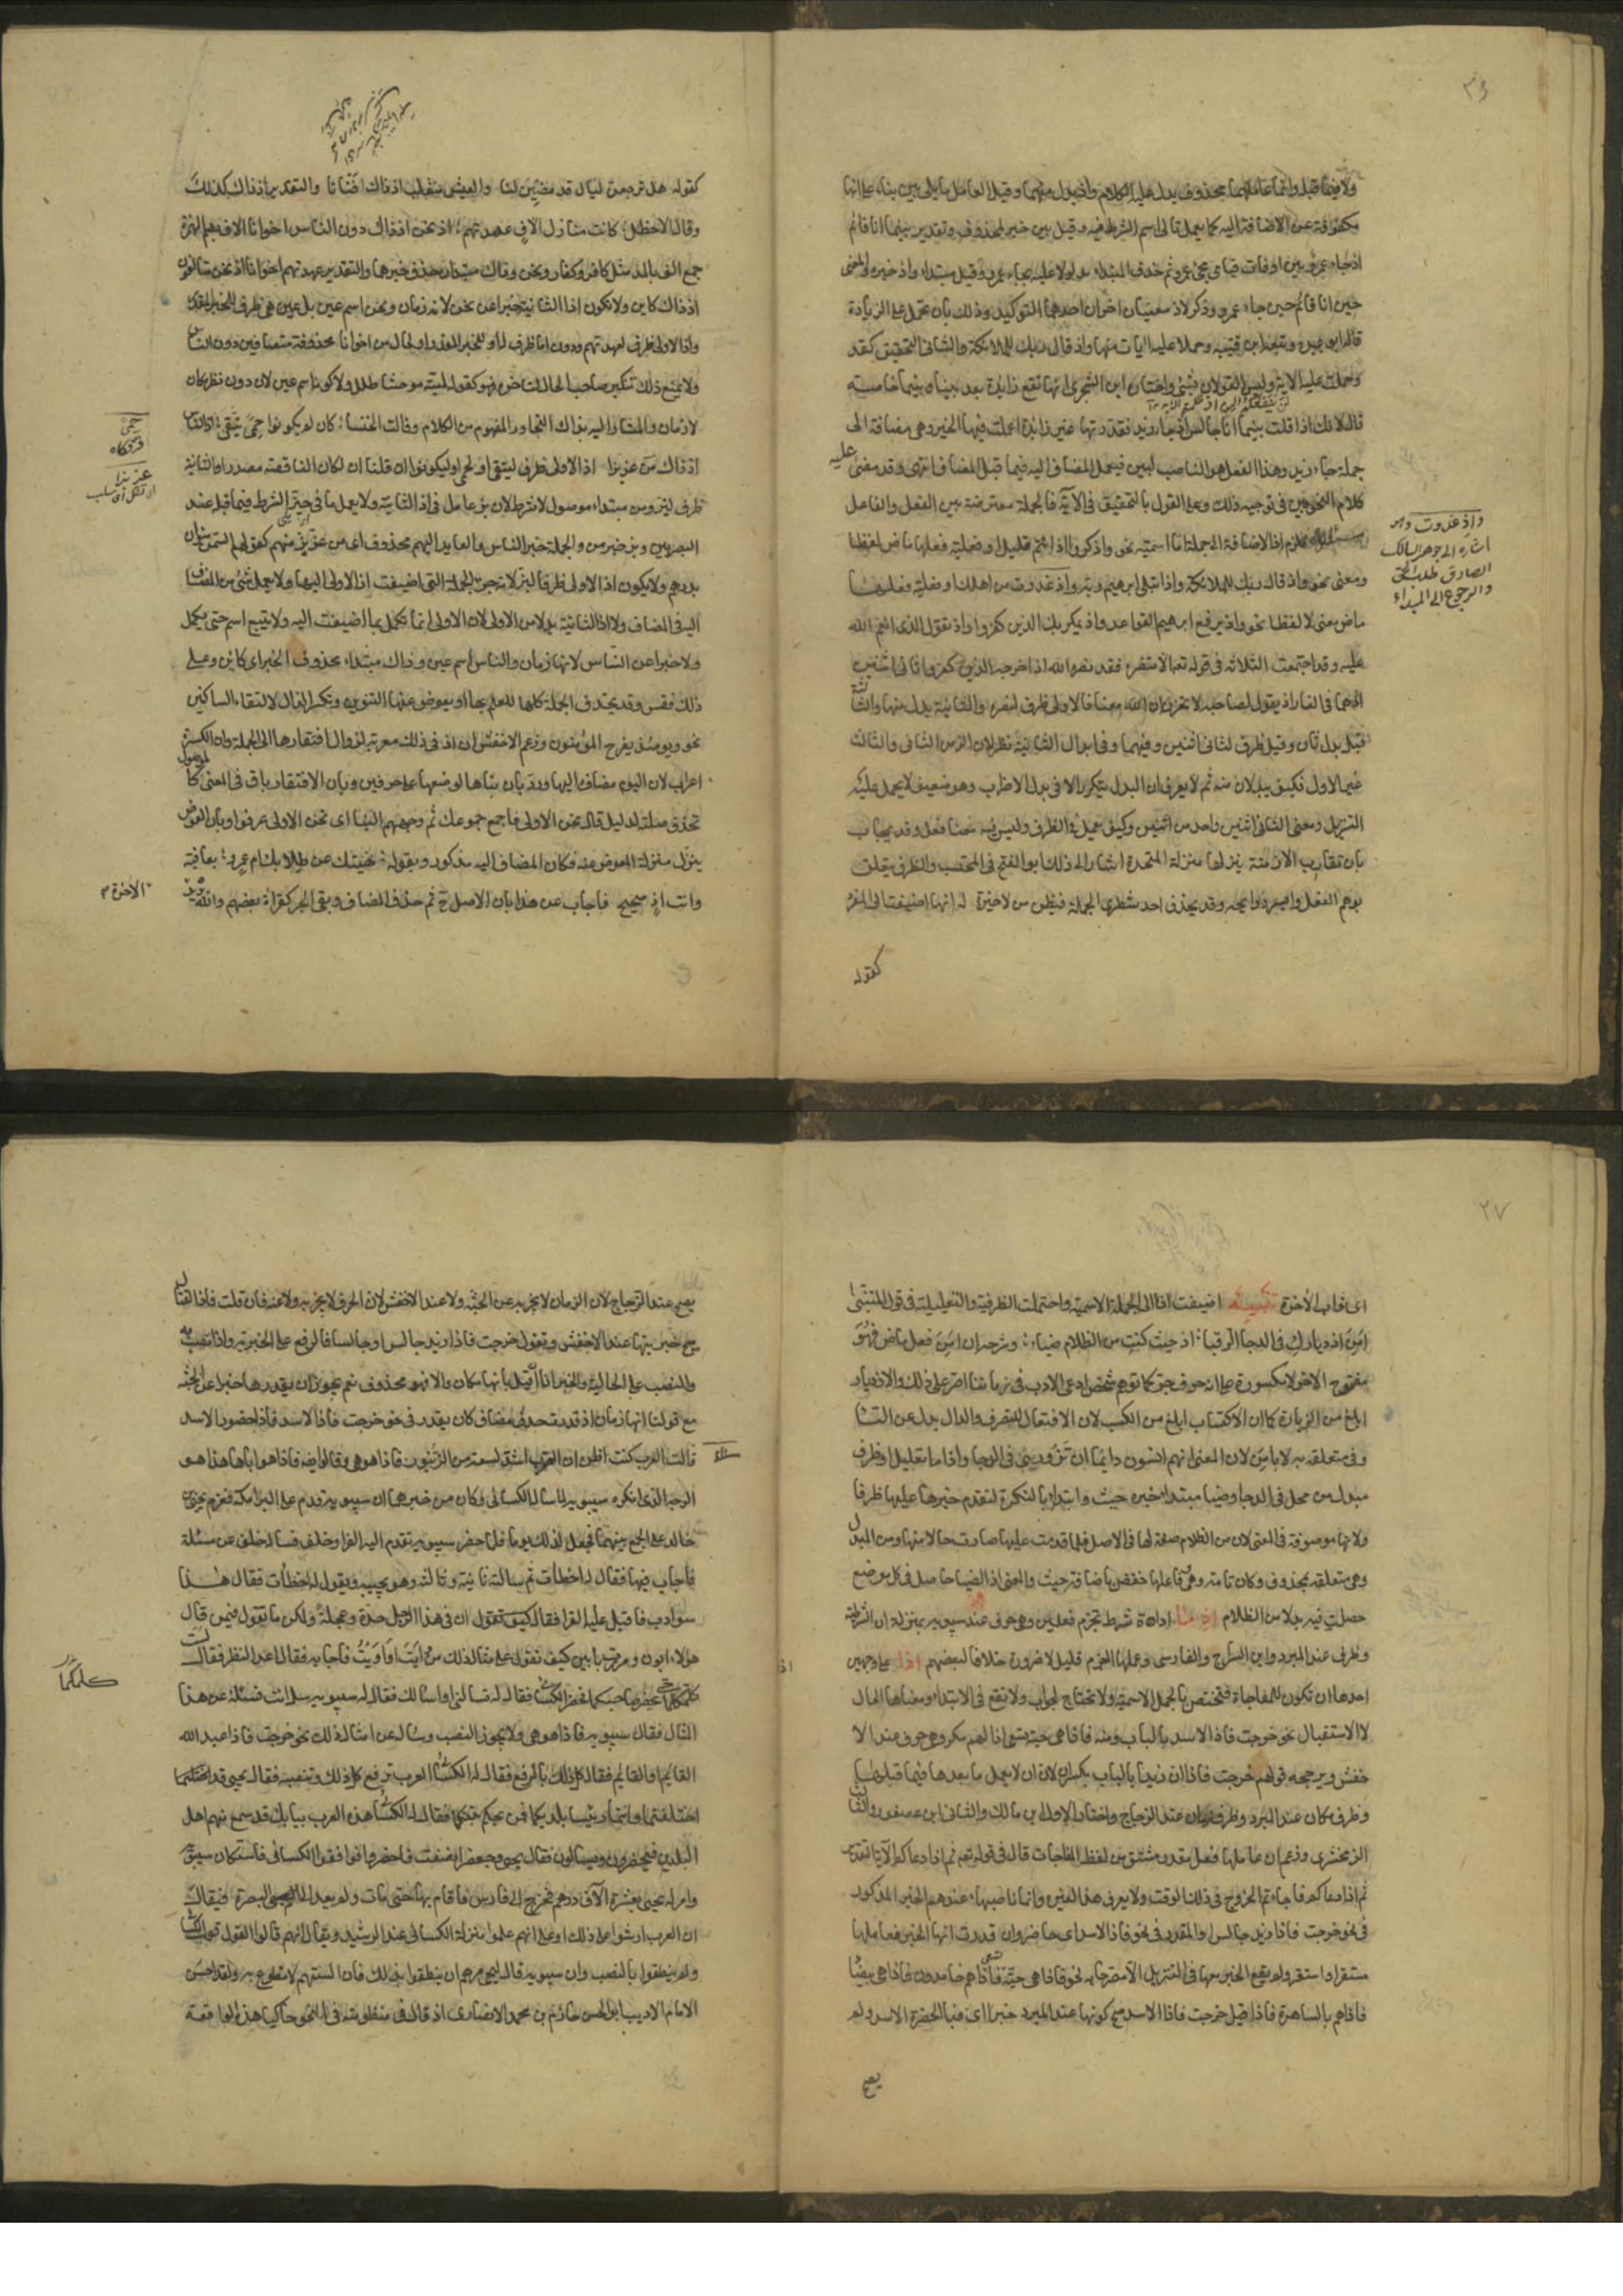 ٣٦
ولا فيما قبله وانما عاملهما محذوف يدل عليه الكلام واذ بدل منهما وقيل العامل ما يلي بين بناء على انها
مكفوفة عن الاضافة اليه كما يعمل تالى اسم الشرط فيه وقيل بين خبر لمحذوف وتقدير بينما انا قائم
اذ جاء عمرو بين اوقات قيامى مجئ عمرو ثم حذف المبتداء مدلولا عليه بجاء عمرو وقيل مبتداء واذ خبره والمعنى
حين انا قائم حين جاء عمرو وذكر لاذ معنيان اخران احدهما التوكيد وذلك بان تحمل على الزيادة
قاله ابو عبيدة وتبعه ابن قتيبه وحملا عليه ايات منها واذ قال ربك للملائكة والثانى التحقيق كقد
وحملت عليه الاية وليس القولان بشئ واختار ابن الشجرى انها تقع زايدة بعد بينا وبينما خاصة
قال لانك اذا قلت بينما انا جالس اذ جاء زيد فقدرتها غير زايدة اعملت فيها الخبر وهى مضافة الى
جملة جاء زيد وهذا الفعل هو الناصب لبين فيعمل المضاف اليه فيما قبل المضاف انتهى وقد مضى
كلام النحويين فى توجيه ذلك وعلى القول بالتحقيق فى الآية فالجملة معترضة بين الفعل والفاعل
مسئلة تلزم اذ الاضافة الى جملة اما اسمية نحو واذكروا اذ انتم قليل او فعلية فعلها ماض لفظا
ومعنى نحو واذ قال ربك للملائكة واذ ابتلى ابرهيم ربه واذ غدوت من اهلك او فعلية فعلها
ماض معنى لا لفظا نحو واذ يرفع ابرهيم القواعد واذ يمكر بك الذين كفروا واذ تقول للذى انعم الله
عليه وقد اجتمعت الثلاثه فى قوله تعالى الا تنصروه فقد نصره الله اذ اخرجه الذين كفروا ثانى اثنين
اذ هما فى الغار اذ يقول لصاحبه لا تحزن ان الله معنا فالاولى ظرف لنصره والثانية بدل منها والثالثة
قيل بدل ثان وقيل ظرف لثانى اثنين وفيهما وفى ابدال الثانية نظر لان الزمن الثانى والثالث
غير الاول فكيف يبدلان منه ثم لا يعرف ان البدل يتكرر الا فى بدل الاضراب وهو ضعيف لا يحمل عليه
التنزيل ومعنى الثانى اثنين واحد من اثنين وكيف يعمل فى الظرف وليس فيه معنا فعل وقد يجاب
بان تقارب الازمنة ينزلها منزلة المتحدة اشار الى ذلك ابو الفتح فى المحتسب والظرف يتعلق
بوهم الفعل وايسر روايحه وقد يحذف احد شطرى الجملة فيظن من لا خبرة له انها اضيفت الى المفرد
كقوله
عليه
واذ غدوت وهو
اشارة الى جوهر السالك
الصادق طلب الحق
والرجوع الى المبداء
كقوله هل ترجعن ليال قد مضين لنا والعيش منقلب اذ ذاك افنانا والتقدير اذ ذاك كذلك
وقال الاخطل كانت منازل الاف عهدتهم اذ نحن اذ ذاك دون الناس اخوانا الاف بضم الهمزة
جمع الف بالمد مثل كافر وكفار ونحن وذاك مبتدان حذف خبرهما والتقدير عهدتهم اخوانا اذ نحن متالفون
اذ ذاك كاين ولا تكون اذ الثانية خبرا عن نحن لانه زمان ونحن اسم عين بل هى ظرف للخبر المقدر
واذ الاولى ظرف لعهدتهم ودون اما ظرف له او للخبر المقدر او لحال من اخوانا محذوفة متصافين دون الناس
ولا يمنع ذلك تنكير صاحب الحال لتاخره فهو كقوله لمية موحشا طلل ولا كونه اسم عين لان دون ظرف مكان
لا زمان والمشار اليه بذاك التجاور المفهوم من الكلام وقالت الخنساء كان لم يكونوا حمى يتقى اذ الناس
اذ ذاك من عز بزا اذ الاولى ظرف ليتقى او لحمى او ليكونوا ان قلنا ان لكان الناقصة مصدرا والثانية
ظرف لبز ومن مبتداء موصول لا شرط لان بز عامل فى اذ الثانية ولا يعمل ما فى حيز الشرط فيما قبله عند
البصريين وبز خبر من والجملة خبر الناس والعايد اليهم محذوف اى من عز بز منهم كقولهم السمن منوان
بدرهم ولا يكون اذ الاولى ظرفا لبز لانه جزء الجملة التى اضيفت اذ الاولى اليها ولا يعمل شئ من المضاف
اليه فى المضاف ولا اذ الثانية بدلا من الاولى لان الاولى انما تكمل بما اضيفت اليه ولا يتبع اسم حتى يكمل
ولا خبرا عن الناس لانها زمان والناس اسم عين وذاك مبتداء محذوف الخبر اى كاين وعلى
ذلك فقس وقد يحذف الجملة كلها للعلم بها او يعوض عنها التنوين وتكسر الذال لالتقاء الساكنين
نحو ويومئذ يفرح المؤمنون وزعم الاخفش ان اذ فى ذلك معربة لزوال افتقارها الى الجملة وان الكسرة
اعراب لان اليوم مضاف اليها ورد بان بناها لوضعها على حرفين وبان الافتقار باق فى المعنى كالموصول
تحذف صلته لدليل قال نحن الاولى فاجمع جموعك ثم وجههم الينا اى نحن الاولى عرفوا وبان العوض
ينزل منزلة المعوض عنه فكان المضاف اليه مذكور وبقوله نهيتك عن طلابك ام عمرو بعافية
وانت اذ صحيح فاجاب عن هذا بان الاصل ح ثم حذف المضاف وبقى الجر كقراءة بعضهم والله يريد
الآخرة
حمى
عز بزا
٢٧
اى ثواب الآخرة تنبيه اضيفت اذ الى الجملة الاسمية واحتملت الظرفية والتعليلية فى قول المتنبى
امن ازديارك فى الدجا الرقباء اذ حيث كنت من الظلام ضياء وشرحه ان امن فعل ماض فهو
مفتوح الاخر لا مكسورة على انه حرف جر كما توهم شخص ادعى الادب فى زماننا اصر على ذلك والازديار
ابلغ من الزيارة كما ان الاكتساب ابلغ من الكسب لان الافتعال للتصرف والدال بدل عن التاء
وفى متعلقه به لا بامن لان المعنى انهم امنون دايما ان تزورى فى الدجا واذ اما تعليل او ظرف
مبدل من محل فى الدجا وضيا مبتداء خبره حيث وابتداء بالنكرة لتقدم خبرها عليها ظرفا
ولانها موصوفة فى المعنى لان من الظلام صفة لها فى الاصل فلما قدمت عليها صارت حالا منها ومن للبدل
وهى متعلقه بمحذوف وكان تامة وهى وفاعلها خفض باضافة حيث والمعنى اذ الضيا حاصل فى كل موضع
حصلت فيه بدلا من الظلام اذ ما اداة شرط تجزم فعلين وهى حرف عند سيبويه بمنزلة ان الشرطية
وظرف عند المبرد وابن السراج والفارسى وعملها الجزم قليل لا ضرورة خلافا لبعضهم اذا على وجهين
احدها ان تكون للمفاجاة فتختص بالجمل الاسمية ولا تحتاج لجواب ولا تقع فى الابتداء ومعناها الحال
لا الاستقبال نحو خرجت فاذا الاسد بالباب ومنه فاذا هى حية تسعى اذا لهم مكر وهى حرف عند الا
خفش ويرجحه قولهم خرجت فاذا ان زيدا بالباب بكسر ان لان ان لا يعمل ما بعدها فيما قبلها
وظرف مكان عند المبرد وظرف زمان عند الزجاج واختار الاول ابن مالك والثانى ابن عصفور والثالث
الزمخشرى وزعم ان عاملها فعل مقدر مشتق من لفظ المفاجات قال فى قوله تعالى ثم اذا دعاكم الآية التقدير
ثم اذا دعاكم فاجاءتم الخروج فى ذلك الوقت ولا يعرف هذا لغيره وانما ناصبها عندهم الخبر المذكور
فى نحو خرجت فاذا زيد جالس او المقدر فى نحو فاذا الاسد اى حاضر وان قدرت انها الخبر فعاملها
مستقر او استقر ولم يقع الخبر معها فى التنزيل الا مصرحا به نحو فاذا هى حية تسعى فاذا هم خامدون فاذا هى بيضا
فاذاهم بالساهرة فاذا قيل خرجت فاذا الاسد صح كونها عند المبرد خبرا اى فبالحضرة الاسد ولم
يصح
يصح عند الزجاج لان الزمان لا يخبر به عن الجثه ولا عند الاخفش لان الحرف لا يخبر به ولا عنه فان قلت فاذا القتال
صح خبريتها عند غير الاخفش وتقول خرجت فاذا زيد جالس او جالسا فالرفع على الخبرية واذا نصب به
والنصب على الحالية والخبر اذا ان قيل بانها مكان والا فهو محذوف نعم يجوز ان يقدرها خبرا عن الجثه
مع قولنا انها زمان اذ قدرت حذف مضاف كان يقدر فى نحو خرجت فاذا الاسد فاذا حضور الاسد
مسئلة
قالت العرب كنت اظن ان العقرب اشد لسعة من الزنبور فاذا هو هى وقالوا ايضا فاذا هو اياها هذا هو
الوجه الذى انكره سيبويه لما سئاله الكسائى وكان من خبرهما ان سيبويه قدم على البرامكة فعزم يحيى بن
خالد على الجمع بينهما فجعل لذلك يوما فلما حضر سيبويه تقدم اليه الفرا وخلف فساله خلف عن مسئلة
فاجاب فيها فقال له اخطأت ثم ساله ثانية وثالثة وهو يجيبه ويقول له اخطأت فقال هذا
سوء ادب فاقبل عليه الفرا فقال كيف تقول ان فى هذا الرجل حدة وعجلة ولكن ما تقول فيمن قال
هولاء ابون ومررت بابين كيف تقول على مثال ذلك من وايت او اويت فاجابه فقال اعد النظر فقال
لست اكلمكما حتى يحضر صاحبكما فحضر الكسائى فقال له تسالنى او اسالك فقال له سيبويه سل انت فسئله عن هذا
المثال فقال سيبويه فاذا هو هى ولا يجوز النصب وساله عن امثال ذلك نحو خرجت فاذا عبد الله
القايم او القايم فقال كل ذلك بالرفع فقال له الكسائى العرب ترفع كل ذلك وتنصبه فقال يحيى قد اختلفتما
اختلفتما وانتما رئيسا بلديكما فمن يحكم بينكما فقال له الكسائى هذه العرب ببابك قد سمع منهم اهل
البلدين فيحضرون ويسالون فقال يحيى وجعفر انصفت فاحضروا فوافقوا الكسائى فاستكان سيبويه
وامر له يحيى بعشرة الآف درهم فخرج الى فارس فاقام بها حتى مات ولم يعد الى البصرة فيقال
ان العرب ارشوا على ذلك او على انهم علموا منزلة الكسائى عند الرشيد ويقال انهم قالوا القول قول الكسائى
ولم ينطقوا بالنصب وان سيبويه قال ليحيى مرهم ان ينطقوا بذلك فان السنتهم لا تطوع به ولقد احسن
الامام الاديب ابو الحسن حازم بن محمد الانصارى اذ قال فى منظومته فى النحو حاكيا هذه الواقعة